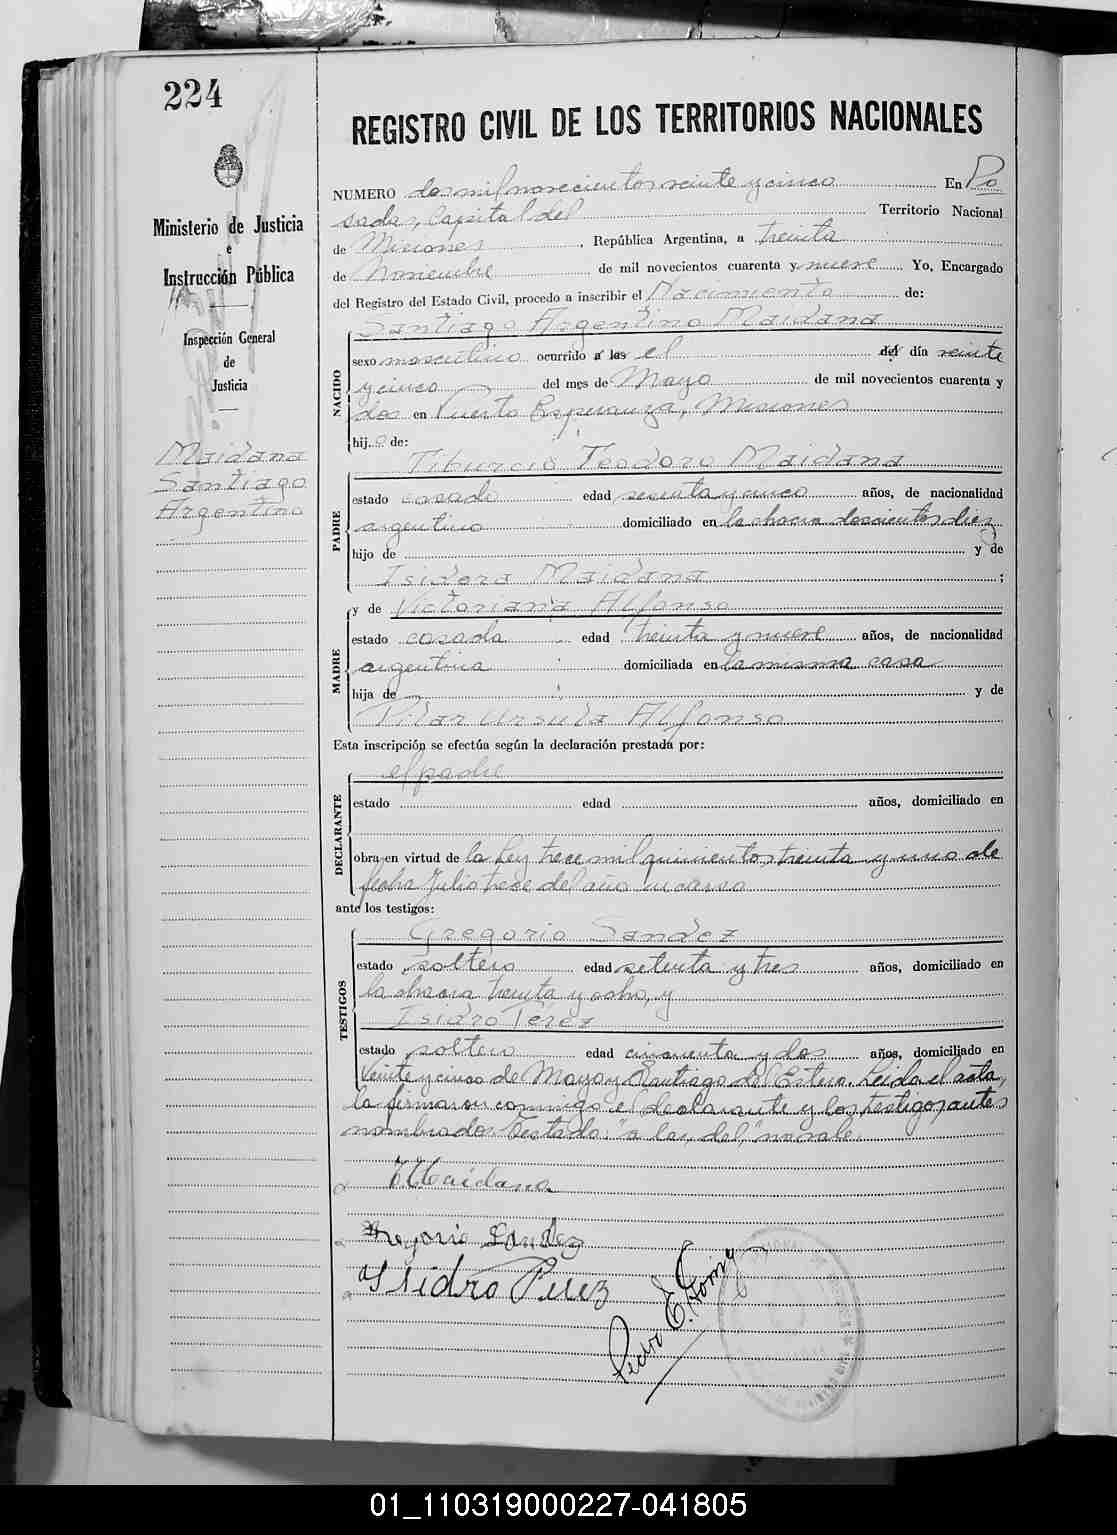 224
Ministerio de Justicia
e
Instrucción Pública
Inspección General
de
Justicia
Maidana
Santiago
Argentino
REGISTRO CIVIL DE LOS TERRITORIOS NACIONALES
NUMERO dos mil novecientos veinte y cinco En Po
sadas, Capital del Territorio Nacional
de Misiones, República Argentina, a treinta
de Noviembre de mil novecientos cuarenta y nueve Yo, Encargado
del Registro del Estado Civil, procedo a inscribir el Nacimiento de:
Santiago Argentino Maidana
NACIDO
sexo masculino ocurrido a las el del día veinte
y cinco del mes de Mayo de mil novecientos cuarenta y
dos en Puerto Esperanza, Misiones
hijo de:
Tiburcio Teodoro Maidana
PADRE
estado casado edad sesenta y cinco años, de nacionalidad
argentino domiciliado en la chacra doscientos diez
hijo de y de
Isidora Maidana ;
y de Victoriana Alfonso
MADRE
estado casada edad treinta y nueve años, de nacionalidad
argentina domiciliada en la misma casa
hija de y de
Pilar Ursula Alfonso
Esta inscripción se efectúa según la declaración prestada por:
el padre
DECLARANTE
estado edad años, domiciliado en
obra en virtud de la Ley trece mil quinientos treinta y uno de
fecha Julio trece del año en curso
ante los testigos:
Gregorio Sandez
TESTIGOS
estado soltero edad setenta y tres años, domiciliado en
la chacra treinta y ocho, y
Isidro Pérez
estado soltero edad cincuenta y dos años, domiciliado en
Veinte y cinco de Mayo y Santiago del Estero. Leida el acta,
la firmaron conmigo el declarante y los testigos antes
nombrados. Testado: "a las, del," no vale.
T Maidana
Gregorio Sandez
Ysidro Perez
Pedro E.
01_110319000227-041805